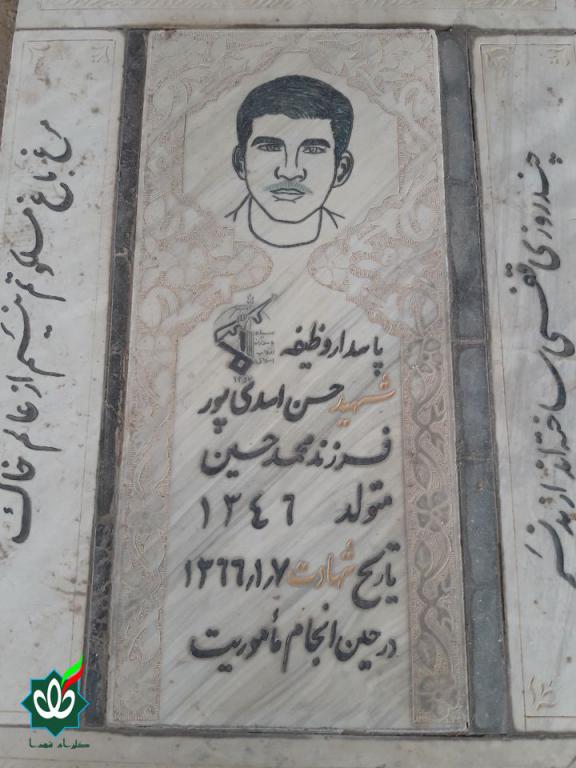 مرغ باغ ملکوتم نیَم از عالم خاک
چند روزی قفسی ساخته‌اند از بدنم
پاسدار وظیفه
شهید حسن اسدی پور
فرزند محمد حسین
متولد ۱۳۴۶
تاریخ شهادت ۱۳۶۶٫۱٫۷
در حین انجام مأموریت